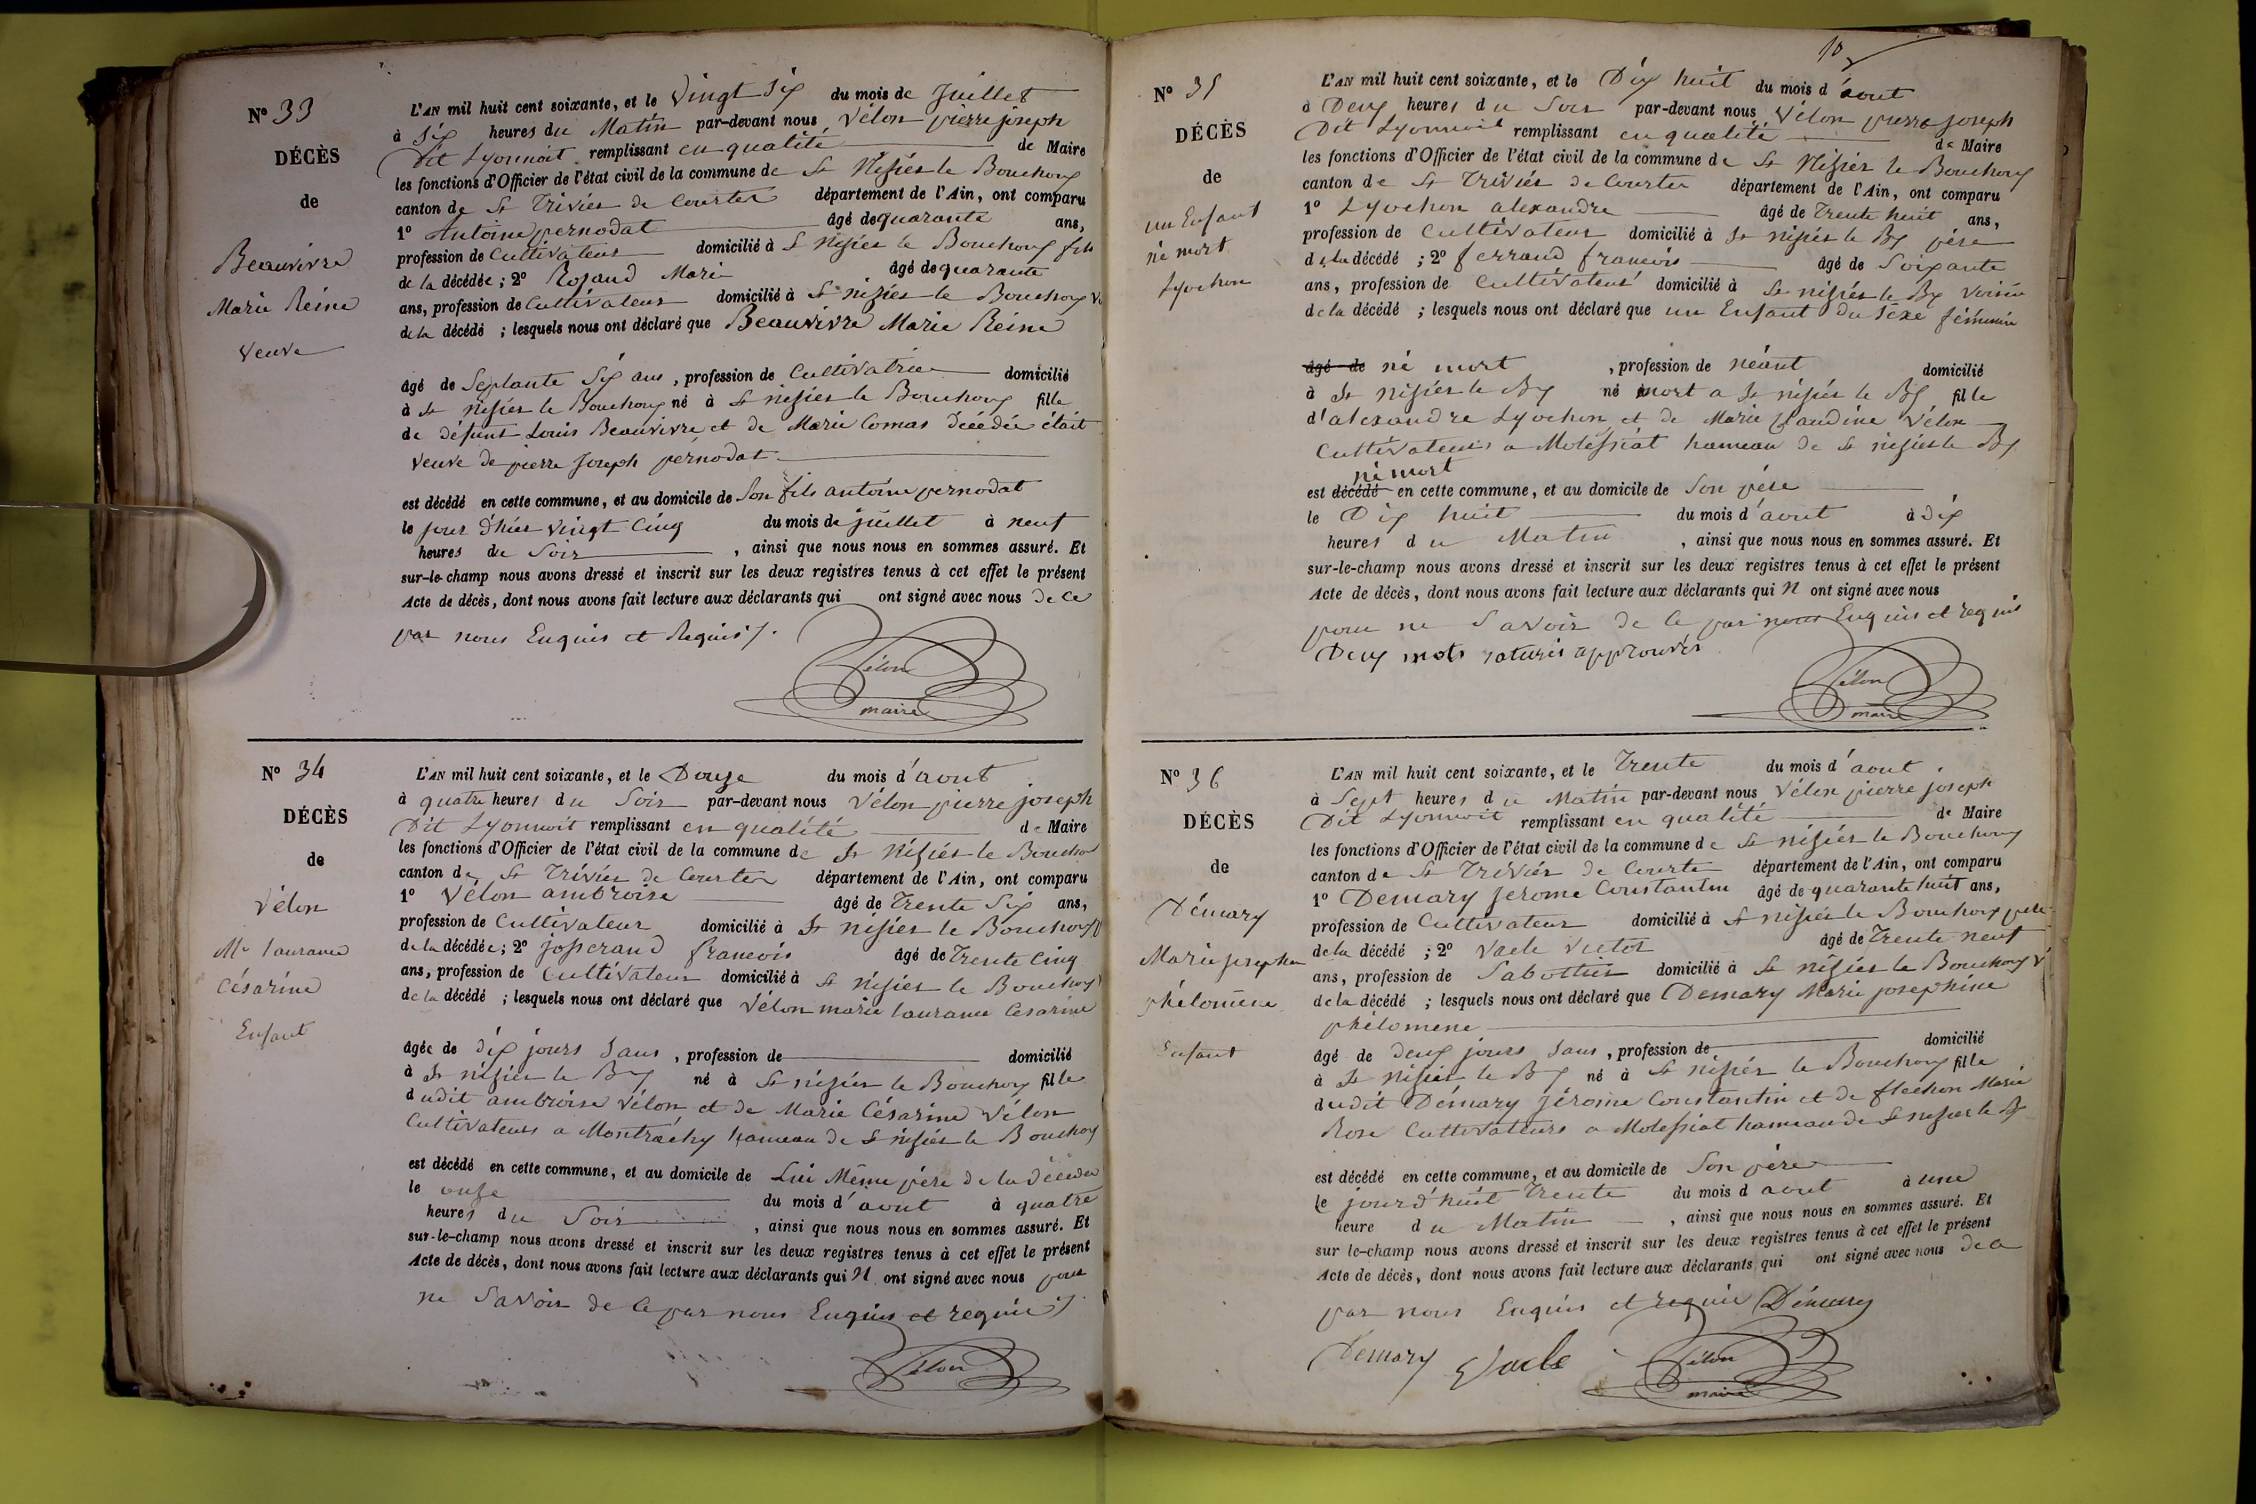 Nº 33
DÉCÈS
de
Beauvivre
Marie Reine
Veuve
L'AN mil huit cent soixante, et le Vingt Six du mois de Juillet
à Six heures du Matin par-devant nous Vélon pierre joseph
Dit Lyonnoit remplissant en qualité de Maire
les fonctions d'Officier de l'état civil de la commune de St Nisiés le Bouchoux
canton de St Trivier de Courtes département de l'Ain, ont comparu
1º Antoine pernodat âgé de quarante ans,
profession de Cultivateur domicilié à St nisiés le Bouchoux fils
de la décédée ; 2º Rosand Marie âgé de quarante
ans, profession de Cultivateur domicilié à St nisiés le Bouchoux
de la décédé ; lesquels nous ont déclaré que Beauvivre Marie Reine
âgé de Septante Six ans, profession de Cultivatrice domicilié
à St nisiés le Bouchoux né à St nisiés le Bouchoux fille
de défunt Louis Beauvivre et de Marie Comas Décédée était
Veuve de pierre Joseph pernodat
est décédé en cette commune, et au domicile de Son fils antoine pernodat
le jour d'hier vingt Cinq du mois de juillet à neuf
heures du Soir, ainsi que nous nous en sommes assuré. Et
sur-le-champ nous avons dressé et inscrit sur les deux registres tenus à cet effet le présent
Acte de décès, dont nous avons fait lecture aux déclarants qui ont signé avec nous de ce
par nous Enquis et Requis
Vélon
maire
Nº 34
DÉCÈS
de
Vélon
Me laurance
Césarine
Enfant
L'AN mil huit cent soixante, et le Douze du mois d'aout
à quatre heures du Soir par-devant nous Vélon pierre joseph
Dit Lyonnoit remplissant en qualité de Maire
les fonctions d'Officier de l'état civil de la commune de St Nisiés le Bouchoux
canton de St Trivier de Courtes département de l'Ain, ont comparu
1º Vélon ambroise âgé de Trente Six ans,
profession de Cultivateur domicilié à St nisiés le Bouchoux
de la décédée ; 2º josserand francois âgé de Trente Cinq
ans, profession de Cultivateur domicilié à St nisiés le Bouchoux
de la décédé ; lesquels nous ont déclaré que Vélon marie laurance Césarine
âgée de dix jours Sans, profession de domicilié
à St nisiés le Bx né à St nisiés le Bouchoux fille
dudit ambroise Vélon et de Marie Césarine Vélon
Cultivateurs a Montrachy hameau de St nisiés le Bouchoux
est décédé en cette commune, et au domicile de Lui Même père de la Décédée
le onze du mois d'aout à quatre
heures du Soir, ainsi que nous nous en sommes assuré. Et
sur-le-champ nous avons dressé et inscrit sur les deux registres tenus à cet effet le présent
Acte de décès, dont nous avons fait lecture aux déclarants qui N ont signé avec nous pour
ne Savoir de Ce par nous Enquis et requis
Vélon
10
Nº 35
DÉCÈS
de
un Enfant
né mort
Lyochon
L'AN mil huit cent soixante, et le Dix huit du mois d'aout
à Deux heures du Soir par-devant nous Vélon pierre joseph
Dit Lyonnoit remplissant en qualité de Maire
les fonctions d'Officier de l'état civil de la commune de St Nisiés le Bouchoux
canton de St Triviés de Courtes département de l'Ain, ont comparu
1º Lyochon alexandre âgé de Trente huit ans,
profession de Cultivateur domicilié à St nisiés le Bx père
de la décédé ; 2º ferrand francois âgé de Soixante
ans, profession de Cultivateur domicilié à St nisiés le Bx Voisin
de la décédé ; lesquels nous ont déclaré que un Enfant du Séxe féminin
âgé de né mort, profession de néant domicilié
à St nisiés le Bx né mort a St nisiés le Bx fille
d'alexandre Lyochon et de Marie Claudine Vélon
Cultivateurs a Molessiat hameau de St nisiés le Bx
né mort
est décédé en cette commune, et au domicile de Son père
le Dix huit du mois d'aout à dix
heures du Matin, ainsi que nous nous en sommes assuré. Et
sur-le-champ nous avons dressé et inscrit sur les deux registres tenus à cet effet le présent
Acte de décès, dont nous avons fait lecture aux déclarants qui N ont signé avec nous
pour ne Savoir de Ce par nous Enquis et requis
Deux mots raturés approuvés
Vélon
maire
Nº 36
DÉCÈS
de
Démary
Marie josephine
phélomène
Enfant
L'AN mil huit cent soixante, et le Trente du mois d'aout
à Sept heures du Matin par-devant nous Vélon pierre joseph
Dit Lyonnoit remplissant en qualité de Maire
les fonctions d'Officier de l'état civil de la commune de St nisiés le Bouchoux
canton de St Triviés de Courte département de l'Ain, ont comparu
1º Demary Jerome Constantin âgé de quarante huit ans,
profession de Cultivateur domicilié à St nisiés le Bouchoux père
de la décédé ; 2º Vacle Victor âgé de Trente neuf
ans, profession de Sabottier domicilié à St nisiés le Bouchoux V
de la décédé ; lesquels nous ont déclaré que Demary Marie josephine
phélomene
âgé de deux jours Sans, profession de domicilié
à St nisiés le Bx né à St nisiés le Bouchoux fille
dudit Démary Jérome Constantin et de flechon Marie
Rose Cultivateurs a Molessiat hameau de St nisiés le Bx
est décédé en cette commune, et au domicile de Son père
le jourd'huit Trente du mois d aout à une
heure du Matin, ainsi que nous nous en sommes assuré. Et
sur le-champ nous avons dressé et inscrit sur les deux registres tenus à cet effet le présent
Acte de décès, dont nous avons fait lecture aux déclarants qui ont signé avec nous de ce
par nous Enquis et requis Démary
Démary Vacle Vélon
maire